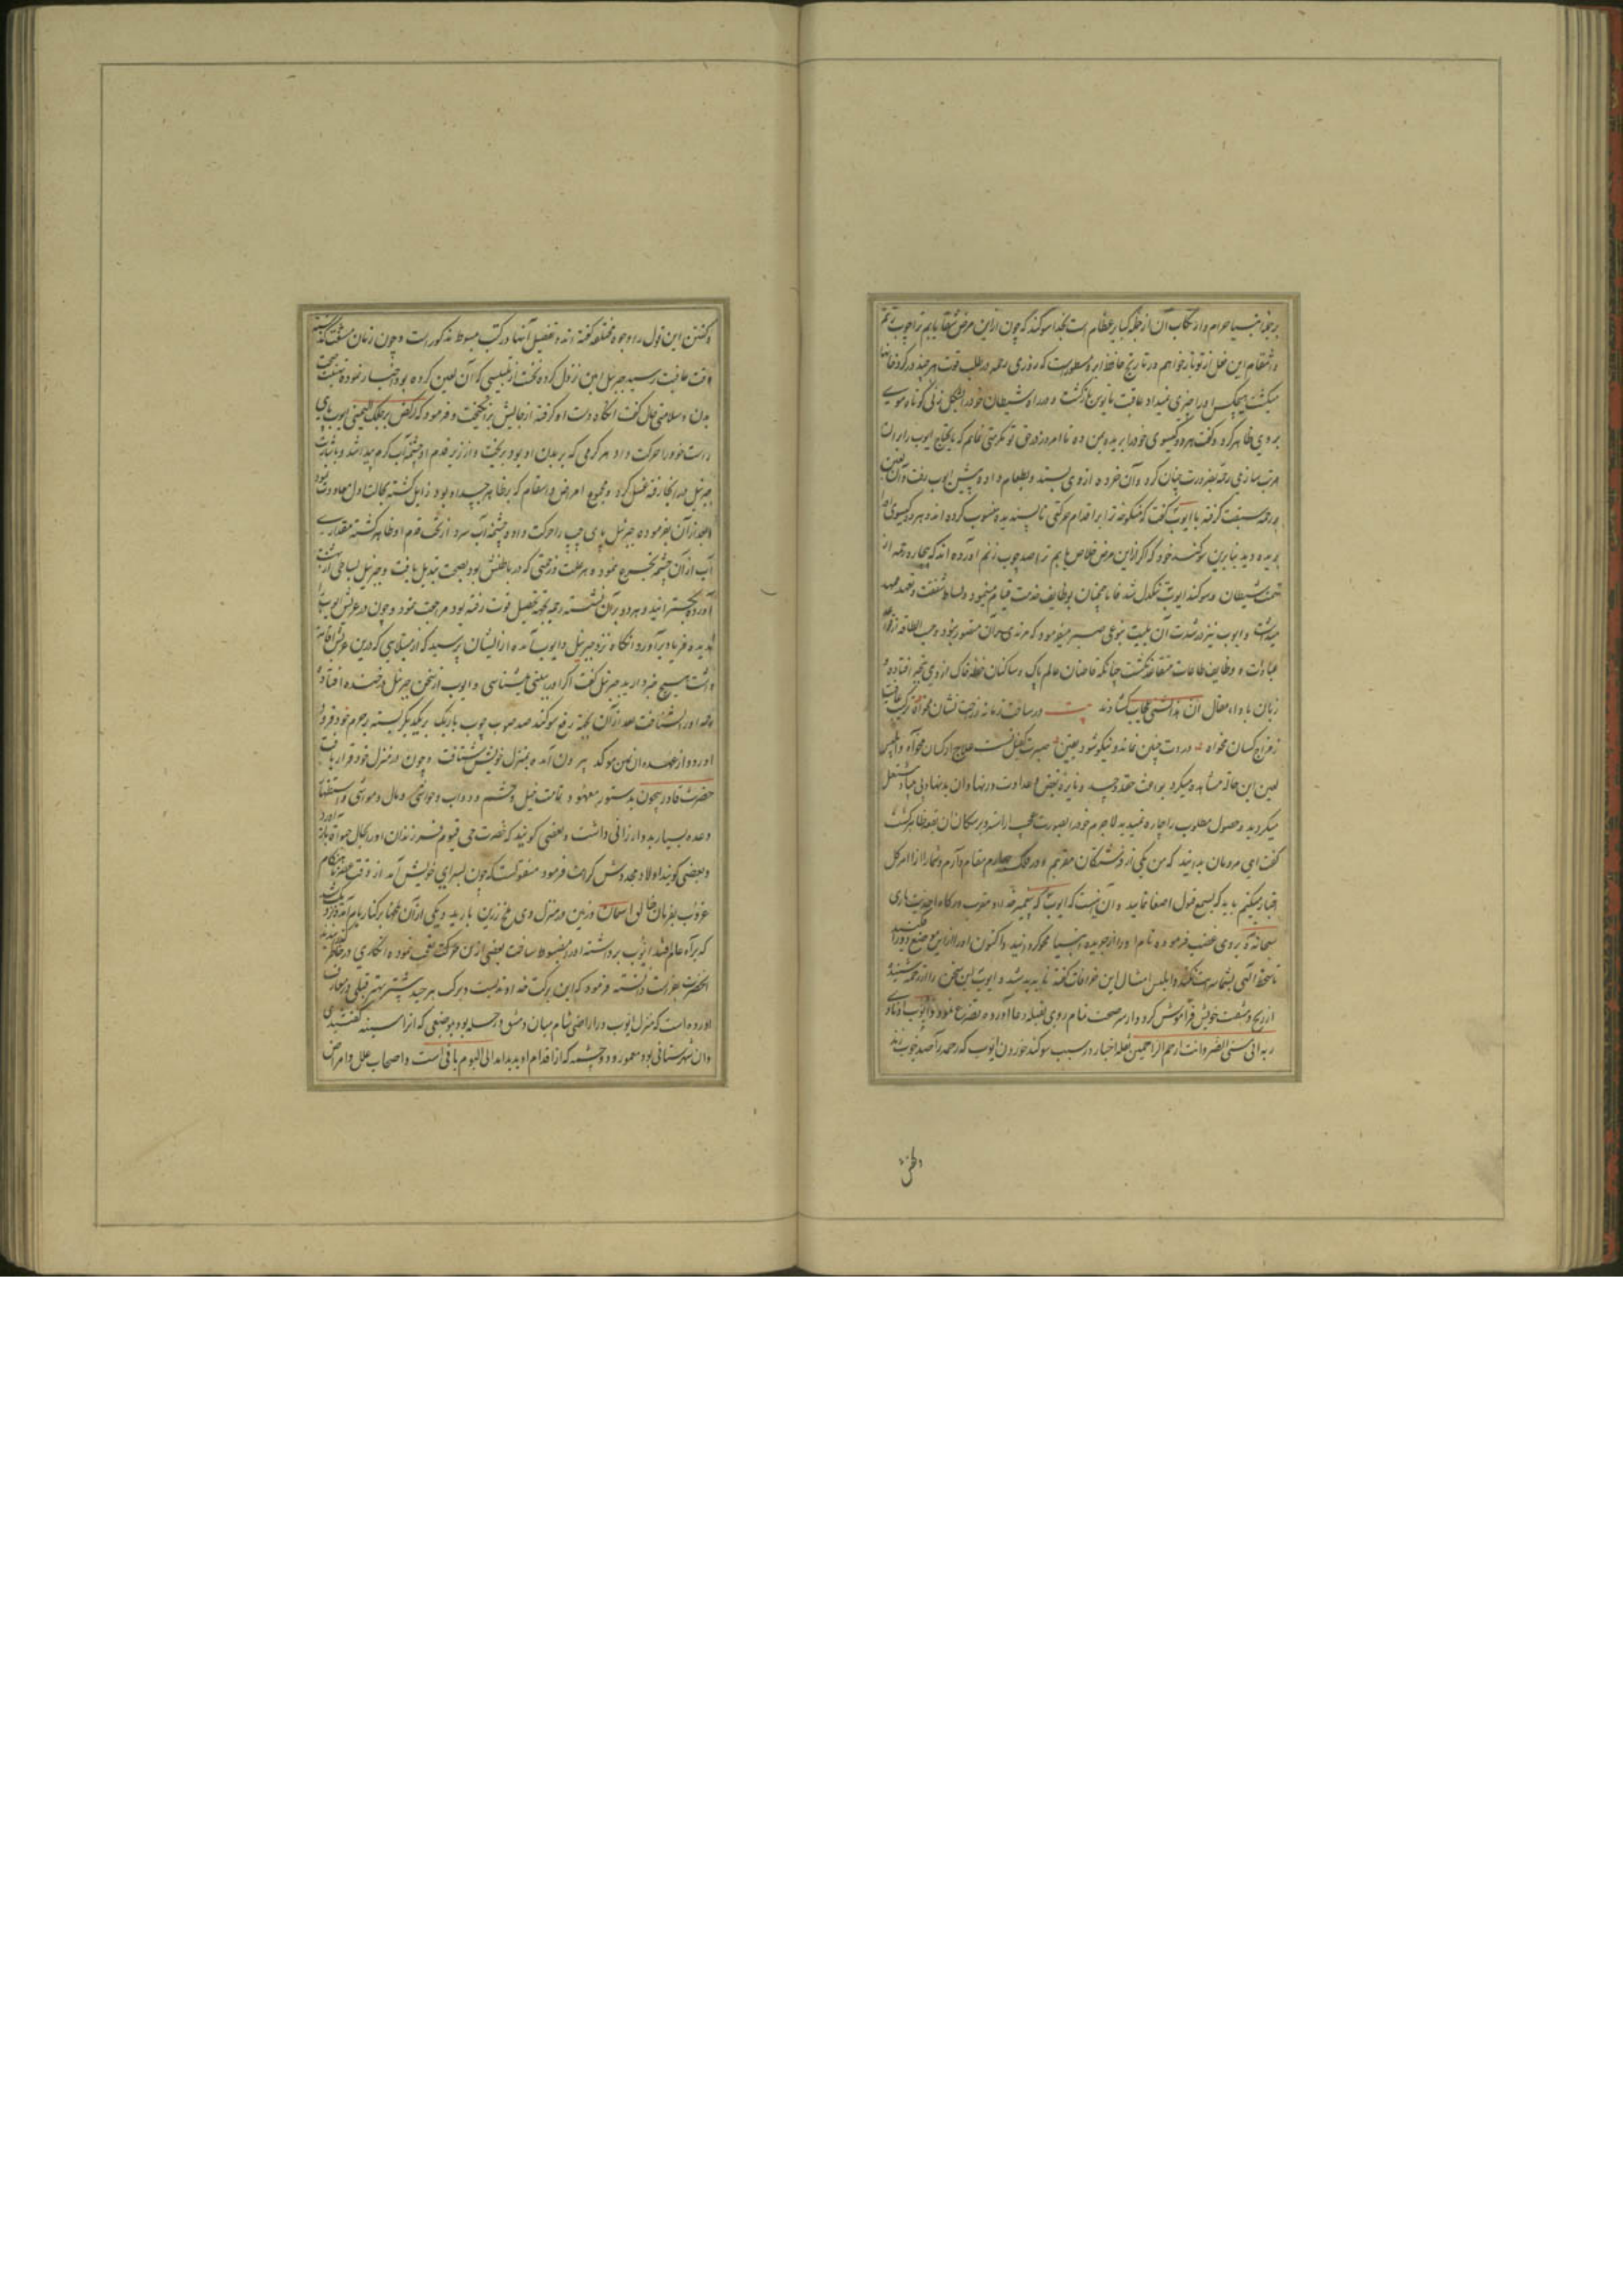 بر جمیع انبیا حرام و ارتکاب آن از جمله کبایر عظایم است بخدا سوکند که چون ازین مرض شفا یابم ترا چوب زنم
و انتقام این فعل از تو باز خواهم در تاریخ حافظ ابرو مسطورست که روزی رحمه در طلب قوت هر چند در کرد خانها
میکشت هیچکس او را چیزی نمیداد عاقبت مایوس بازکشت و شیطان خود را بشکل زنی کوتاه موی
بر وی ظاهر کرد و کفت هر دو کیسوی خود را بریده بمن ده تا امروز در حق تو تکرمتی نمایم که مایحتاج ایوب را بدان
مرتب سازی رحمه بضرورت چنان کرد و آن خرده از وی بستد و طعام داده پیش ایوب رفت و آن لعین
بر رحمه سبقت کرفته با ایوب کفت که منکوحه ترا بر اقدام حرکتی ناپسندیده منسوب کرده اند و هر دو کیسوی او
بریده دید بنابرین سوکند خورد که اکر ازین مرض خلاص یابم ترا صد چوب زنم آورده اند که بیچاره رحمه از
تهمت شیطان و سوکند ایوب تنکدل شد فاما همچنان بوظایف خدمت قیام مینمود و بساط شفقت و تعهد ممهد
میداشت و ایوب نیز در شدت آن بلیت بنوعی صبر میفرمود که مزیدی بر آن متصور نبود و حسب الطاقه از
عبادات و وظایف طاعات متقاعد نکشت چنانکه قاضیان عالم پاک و ساکنان خطه خاک از وی تحیر افتاده
زبان باداء مقال ان هذا لشیء عجاب کشادند بیت در ساخت زمانه ز راحت نشان مخواه ترکیب عافیت
ز مزاج کسان مخواه در دت چنین نماند و نیکو شود یقین صبرت کفیل تست علاج از کسان مخواه و ابلیس
لعین این حال مشاهده میکرد بواعث حقد و حسد و نایره بغض و عداوت در نهاد آن بدنهاد بی حیا مشتعل
میکردید و حصول مطلوب را چاره نمیدید لاجرم خود را بصورت عجب آراسته و بر سکان آن بقعه ظاهر کشت
کفت ای مردمان بدانید که من یکی از فرشتکان مقربم و در فلک چهارم مقام دارم و شما را از امر کل
اخبار میکنیم باید که بسمع قبول اصغا نمایید و آن آنست که ایوب که پیغمبر خدا و مقرب درکاه احدیت باری
سبحانه بروی غضب فرموده نام او را از جریده انبیا محو کردانید و اکنون او را ازین موضع دور کنید
تا سخط الهی بشما سرایت نکند و ابلیس امثال این خرافات کفته ناپدید شد و ایوب این سخن را از رحمه شنید
از رنج و مشقت خویش فراموش کرد و از سر صحت تمام روی بقبله دعا آورده بتضرع نمود و ایوب اذ نادی
ربه انی مسنی الضر و انت ارحم الراحمین نقله اخبار در سبب سوکند خوردن ایوب که رحمه را صد چوب زند
و کفتن
و کفتن این قول را وجوه مختلفه کفته اند و تفصیل آنها در کتب مبسوط مذکورست و چون زمان مشقت کذشت
وقت عافیت رسید جبرئیل امین نزول کرده نخست از تلبیسی که آن لعین کرده بود اخبار نموده بشفقت صحت
بدن و سلامتی حال کفت انکاه دست او کرفته از جایش برانکیخت و فرمود که ارکض برجلک الیمنی ایوب پای
راست خود را حرکت داد هر کرمی که بر بدن او بود بریخت و از زیر قدم او چشمه آب کرم پیدا شد و باشارت
جبرئیل بدانجا رفته غسل کرد و مجموع امراض و اسقام که بر ظاهر جسد او بود زایل کشته بحالت اول معاودت نمود
و بعد از آن بفرموده جبرئیل پای چپ را حرکت داده چشمه آب سرد از تحت قدم او ظاهر کشته مقداری
آب از آن چشمه تجرع نمود و هر علت و زحمتی که در باطنش بود بصحت تبدیل یافت و جبرئیل بساطی از بهشت
آورده بکسترانید و هر دو بر آن نشستند رحمه بجهة تحصیل قوت رفته بود مراجعت نمود و چون در عریش ایوب را
ندیده فریاد برآورد و انکاه نزد جبرئیل و ایوب آمده از ایشان پرسید که از مبتلایی که درین عریش اقامت
داشت هیچ خبر دارید جبرئیل کفت اکر او را ببینی میشناسی و ایوب از سخن جبرئیل در خنده افتاد و
رحمه او را بشناخت بعد از آن بجهة رفع سوکند صد چوب باریک بر یکدیکر بسته بر حرم خود فرود
آورد و از عهده آن یمین موکد بیرون آمده بمنزل خویش شتافت و چون در منزل خود قرار یافت
حضرت قادر بیچون بدستور معهود و تمامت خیل و حشم و دواب و حواشی و مال و مواشی و
وعده بسیار بدو ارزانی داشت و بعضی کویند که حضرت حی قیوم فرزندان او را بحال حیوة باز آورد
و بعضی کویند اولاد مجددش کرامت فرمود منقولست که چون بسرای خویش آمد از وقت عصر تا هنکام
غروب بفرمان خالق آسمان و زمین در منزل وی ملخ زرین بارید و یکی از آن ملخها بر کنار بام آمده
که برآه عالم ایوب برداشته او را مضبوط ساخت بعضی ازین حرکت تعجب نموده انکاری در خاطر
انحضرت بفراست دانسته فرمود که این برکت خداوندیست و برکت هر چند بیشتر بهتر قتیبی در معارف
آورده است که منزل ایوب در اراضی شام میان دمشق و رمله بود بموضعی که آنرا بسنه کفتندی
و آن شهرستانی بود معمور و دو چشمه که از اقدام او پدید آمد الی الیوم باقی است و اصحاب علل و امراض